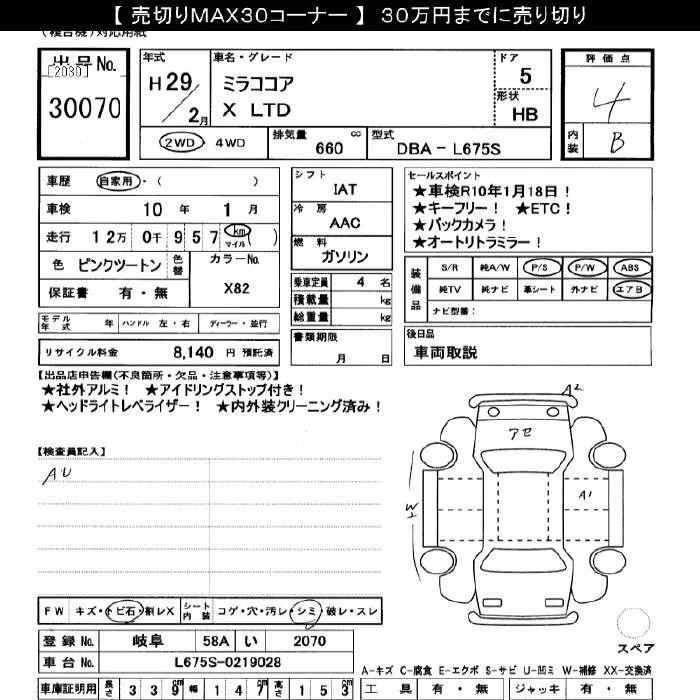 【 売切りMAX30コーナー 】 30万円までに売り切り
(複合機)対応用紙
出品No.
[2030]
30070
年式
H29/2月
車名・グレード
ミラココア
X LTD
ドア
5
形状
HB
評価点
4
内装
B
2WD・4WD
排気量 660 cc
型式 DBA-L675S
車歴 自家用・( )
車検 10年 1月
走行 12万 0千957 km マイル( )
色 ピンクツートン 色替
カラーNo.
X82
保証書 有・無
シフト
IAT
冷房
AAC
燃料
ガソリン
乗車定員 4名
積載量 kg
総重量 kg
セールスポイント
★車検R10年1月18日！
★キーフリー！ ★ETC！
★バックカメラ！
★オートリトラミラー！
装備品
S/R 純A/W P/S P/W ABS
純TV 純ナビ 革シート 外ナビ エアB
ナビ型番：
モデル年式 年 ハンドル 左・右 ディーラー・並行
リサイクル料金 8,140 円 預託済
書類期限
月 日
後日品
車両取説
【出品店申告欄(不良箇所・欠品・注意事項等)】
★社外アルミ！ ★アイドリングストップ付き！
★ヘッドライトレベライザー！ ★内外装クリーニング済み！
【検査員記入】
AU
A2
アセ
A1
W2
FW キズ・トビ石・割レX
シート内装 コゲ・穴・汚レ・シミ・破レ・スレ
登録No. 岐阜 58A い 2070
車台No. L675S-0219028
車庫証明用 長さ 339cm 幅 147cm 高さ 153cm
スペア
A-キズ C-腐食 E-エクボ S-サビ U-凹ミ W-補修 XX-交換済
工具 有・無 ジャッキ 有・無